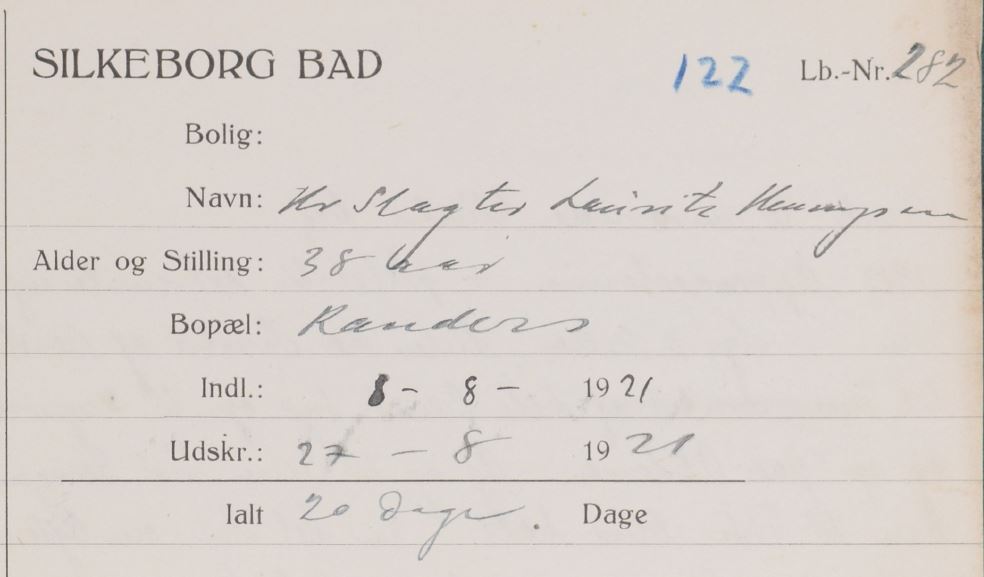 SILKEBORG BAD 122 Lb.-Nr. 282
Bolig:
Navn: Hr Slagter Laurits Henningsen
Alder og Stilling: 38 aar
Bopæl: Randers
Indl.: 8 - 8 - 1921
Udskr.: 27 - 8 1921
Ialt 20 Dage. Dage